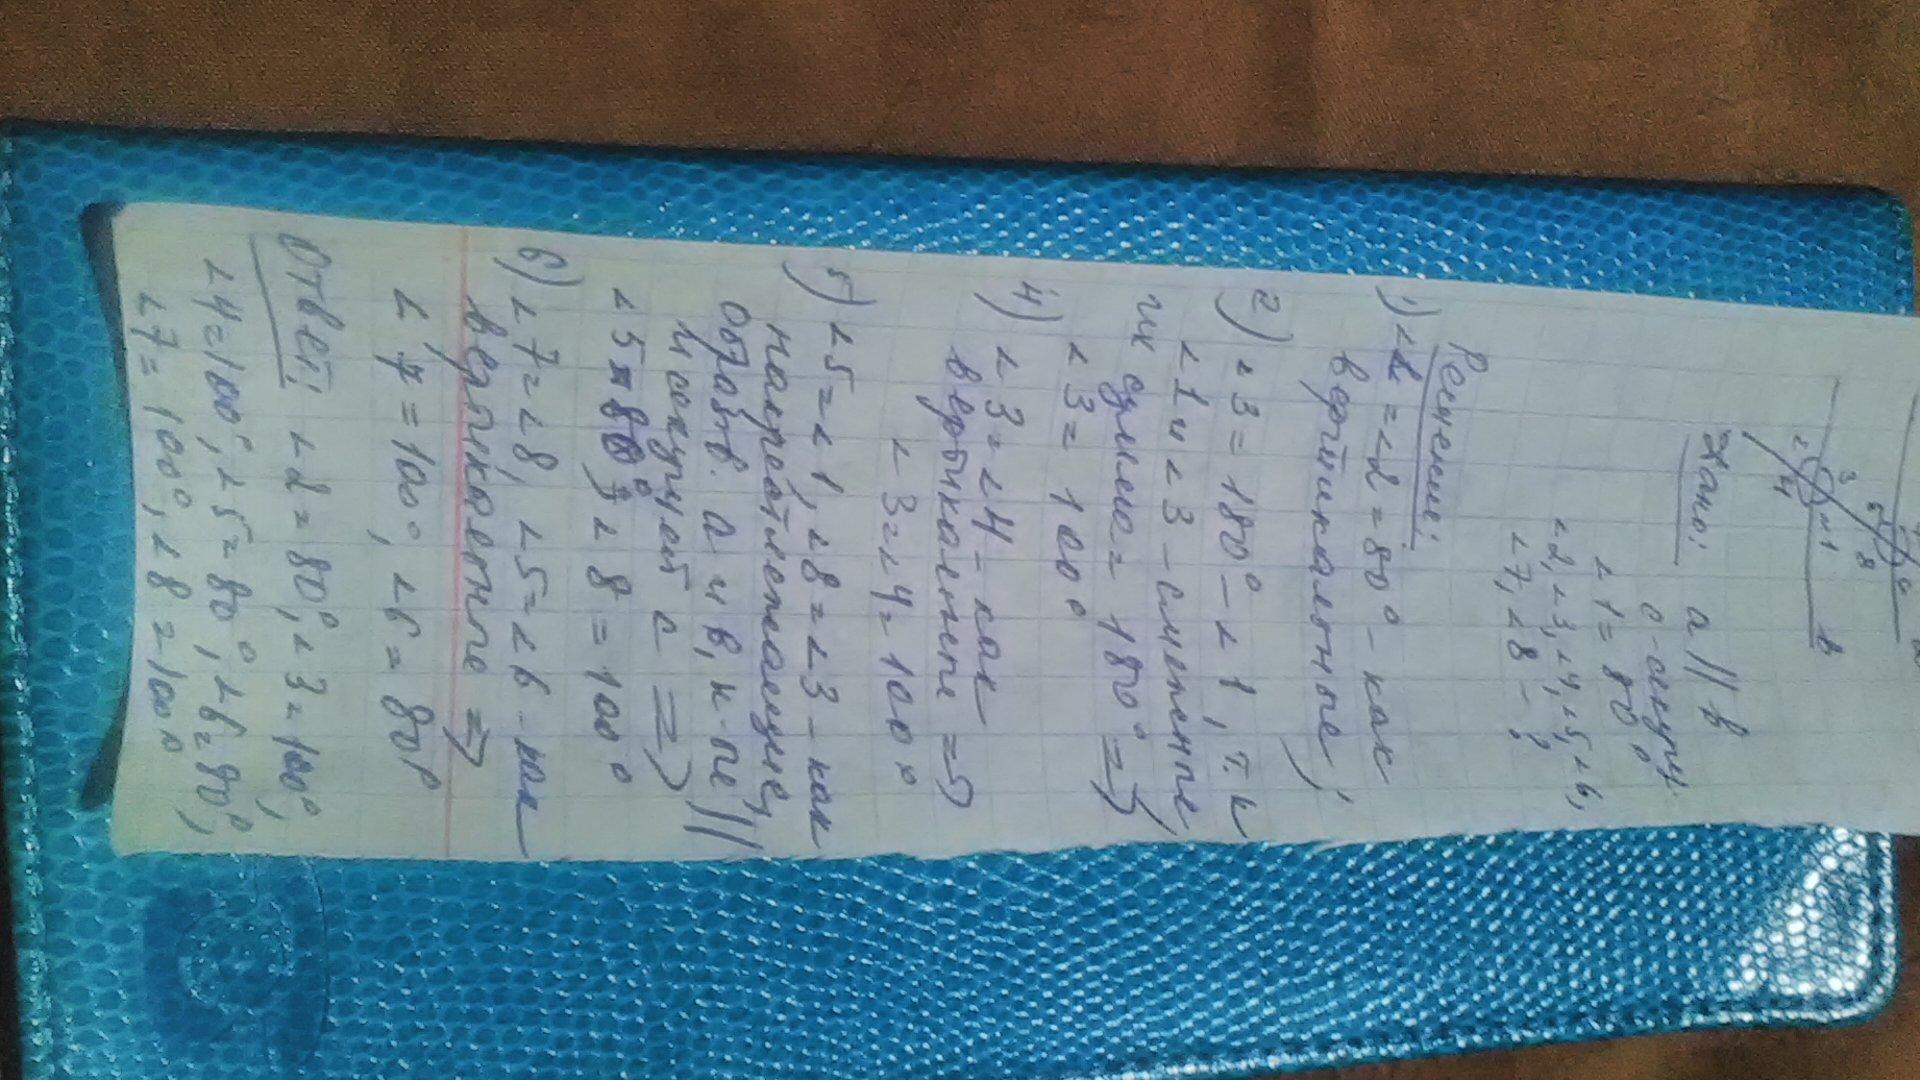 a
7
5 8
3
2 1
4
b
Дано: a || b
c - секущ.
∠1 = 80°
∠2, ∠3, ∠4, ∠5, ∠6,
∠7, ∠8 - ?
Решение:
1) ∠1 = ∠2 = 80° - как
вертикальные;
2) ∠3 = 180° - ∠1, т. к
∠1 и ∠3 - смежные
их сумма = 180° =>
∠3 = 100°
4) ∠3 = ∠4 - как
вертикальные =>
∠3 = ∠4 = 100°
5) ∠5 = ∠1, ∠8 = ∠3 - как
накрест лежащие,
образов. a и b, к-ые ||
и секущей c =>
∠5 = 80°, ∠8 = 100°
6) ∠7 = ∠8, ∠5 = ∠6 - как
вертикальные =>
∠7 = 100°, ∠6 = 80°
Ответ: ∠2 = 80°, ∠3 = 100°,
∠4 = 100°, ∠5 = 80°, ∠6 = 80°,
∠7 = 100°, ∠8 = 100°